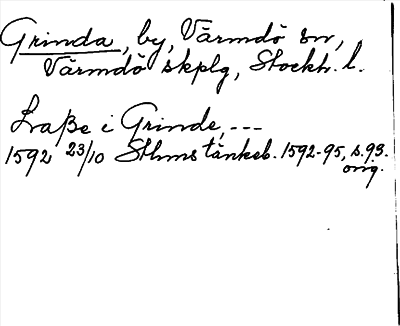 Grinda, by, Värmdö sn,
Värmdö skplg, Stockh. l.
Laße i Grinde, ---
1592 23/10 Sthms tänkeb. 1592-95, s. 93.
orig.